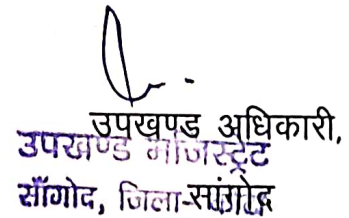 उपखण्ड अधिकारी,
उपखण्ड मजिस्ट्रेट
साँगोद, जिला-सांगोद